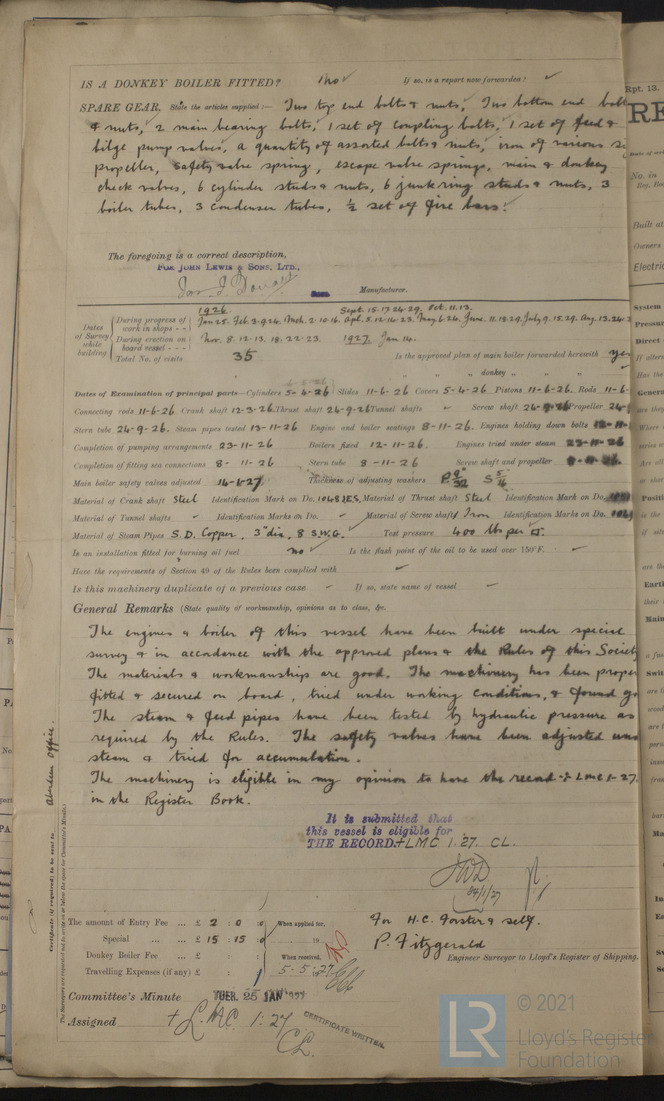 IS A DONKEY BOILER FITTED? no ✓ If so, is a report now forwarded? ✓
SPARE GEAR. State the articles supplied:— Two top end bolts & nuts, Two bottom end bolt
& nuts, 2 main bearing bolts, 1 set of coupling bolts, 1 set of feed &
bilge pump valves, a quantity of assorted bolts & nuts, iron of various
propeller, safety valve spring, escape valve springs, main & donkey
check valves, 6 cylinder studs & nuts, 6 junk ring studs & nuts, 3
boiler tubes, 3 condenser tubes, ½ set of fire bars.
The foregoing is a correct description,
FOR JOHN LEWIS & SONS, LTD.,
Manufacturer.
1926. Sept. 15.17.24.29. Oct. 11.13.
Dates of Survey while building
During progress of work in shops - - Jan 25. Feb. 3.9.24. Mch. 2.10.16. Apl. 5.12.14.23. May 6.24. June. 11.18.29. July 9.15.29. Aug. 13.24.
During erection on board vessel - - - Nov. 8.12.13.18.22.23. 1927. Jan 14.
Total No. of visits 35 Is the approved plan of main boiler forwarded herewith yes
" " " donkey " "
Dates of Examination of principal parts—Cylinders 5-4-26 Slides 11-6-26 Covers 5-4-26 Pistons 11-6-26. Rods 11-6-
Connecting rods 11-6-26. Crank shaft 12-3-26. Thrust shaft 24-9-26 Tunnel shafts ✓ Screw shaft 24-9-26 Propeller 24-
Stern tube 24-9-26. Steam pipes tested 13-11-26 Engine and boiler seatings 8-11-26. Engines holding down bolts 12-11-
Completion of pumping arrangements 23-11-26 Boilers fixed 12-11-26. Engines tried under steam 23-11-26
Completion of fitting sea connections 8-11-26 Stern tube 8-11-26 Screw shaft and propeller 8-11-26.
Main boiler safety valves adjusted 14-1-27. Thickness of adjusting washers P 9/32 S 5/16
Material of Crank shaft Steel Identification Mark on Do. 1048 JES. Material of Thrust shaft Steel Identification Mark on Do.
Material of Tunnel shafts ✓ Identification Marks on Do. ✓ Material of Screw shafts Iron Identification Marks on Do.
Material of Steam Pipes S.D. Copper, 3" dia, 8 S.W.G. Test pressure 400 lbs per □".
Is an installation fitted for burning oil fuel no ✓ Is the flash point of the oil to be used over 150°F. ✓
Have the requirements of Section 49 of the Rules been complied with ✓
Is this machinery duplicate of a previous case ✓ If so, state name of vessel ✓
General Remarks (State quality of workmanship, opinions as to class, &c.
The engines & boiler of this vessel have been built under special
survey & in accordance with the approved plans & the Rules of this Society
The materials & workmanship are good. The machinery has been proper
fitted & secured on board, tried under working conditions, & found
The steam & feed pipes have been tested by hydraulic pressure as
required by the Rules. The safety valves have been adjusted
steam & tried for accumulation.
The machinery is eligible in my opinion to have the record + LMC 1-27.
in the Register Book.
It is submitted that
this vessel is eligible for
THE RECORD. + LMC 1.27. CL.
The amount of Entry Fee ... £ 2 : 0 : 0 When applied for,
Special ... ... £ 15 : 15 : 0 19
Donkey Boiler Fee ... £ : : When received,
Travelling Expenses (if any) £ : : 5.5.27
For H.C. Forster & self.
P. Fitzgerald
Engineer Surveyor to Lloyd's Register of Shipping.
Committee's Minute TUES. 25 JAN 1927
Assigned + LMC 1:27
CL.
CERTIFICATE WRITTEN.
Certificate (if required) to be sent to Aberdeen Office.
(The Surveyors are requested not to write on or below the space for Committee's Minute.)
Rpt. 13.
RE
© 2021
Lloyd's Register
Foundation
LR